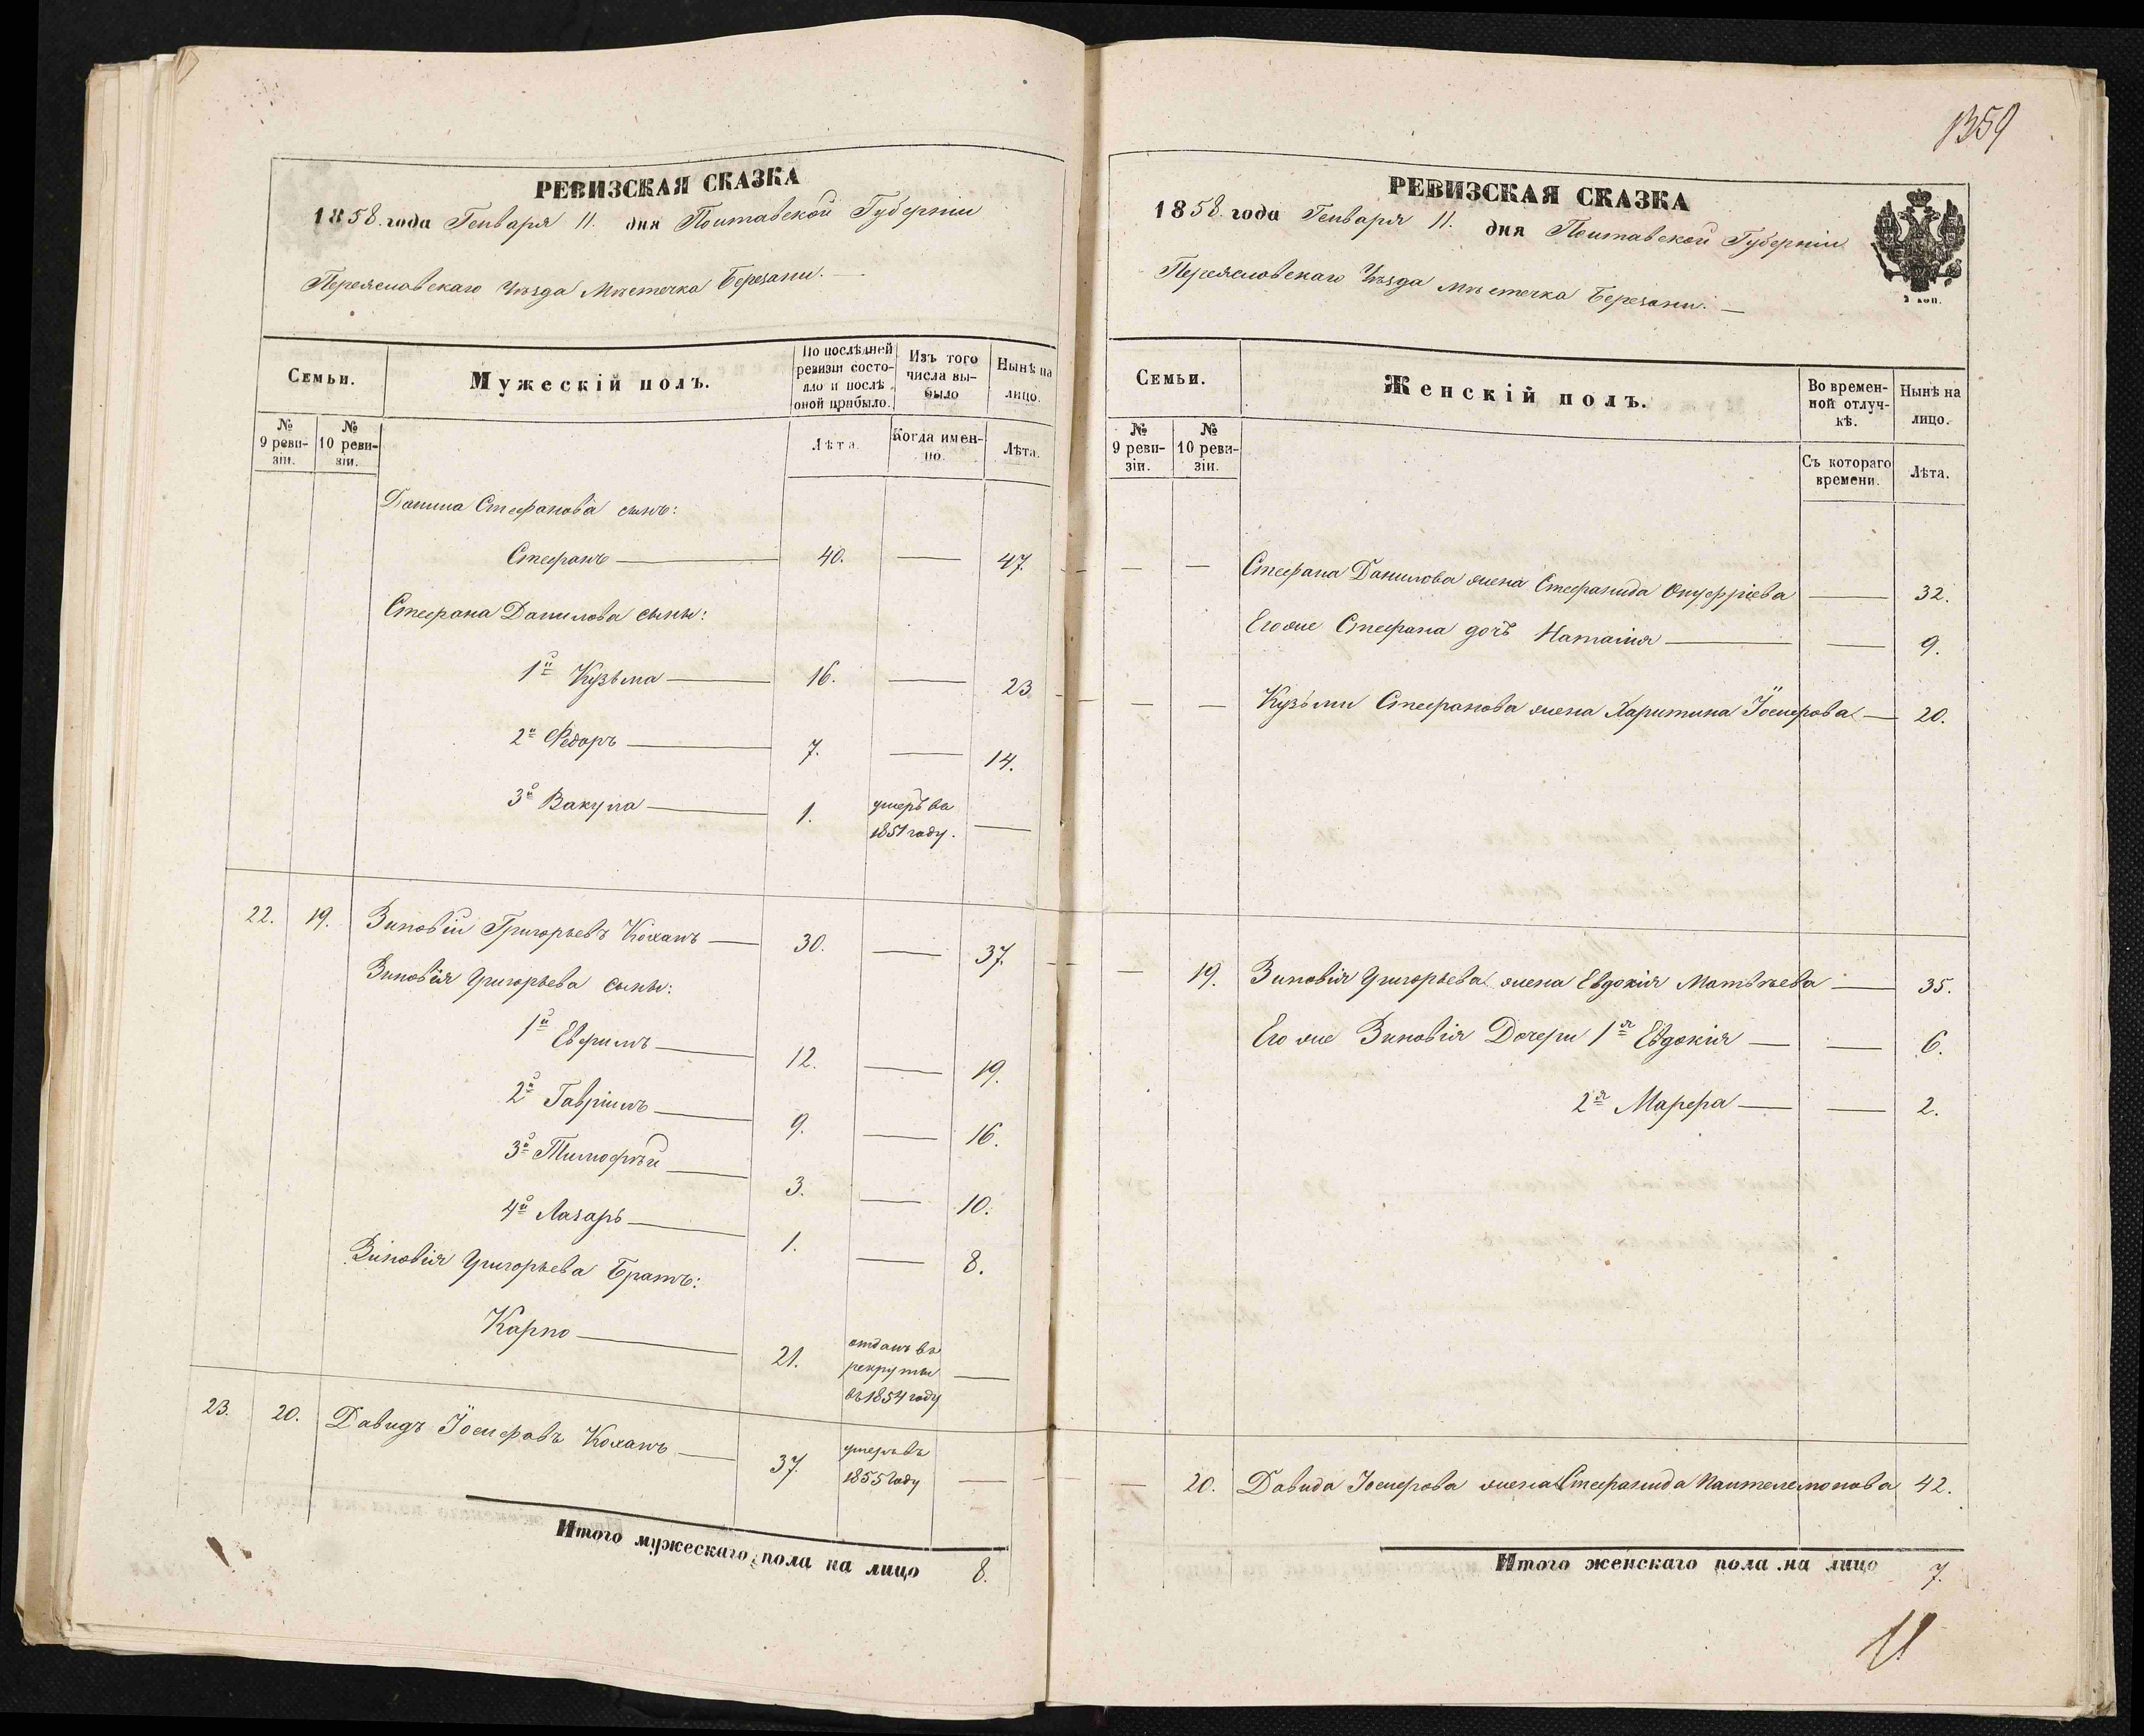 РЕВИЗСКАЯ СКАЗКА
1858. года Генваря 11. дня Полтавской Губерніи
Переяславскаго Уѣзда Мѣстечка Березани. —
Семьи.
Мужескій полъ.
По послѣдней ревизіи состояло и послѣ оной прибыло.
Изъ того числа выбыло
Нынѣ на лицо.
№ 9 ревизіи.
№ 10 ревизіи.
Лѣта.
Когда именно.
Лѣта.
Данила Стефанова сынъ:
Стефанъ — 40. — 47.
Стефана Данилова сыны:
1й Кузьма — 16. — 23
2й Федоръ — 7. — 14.
3й Вакула — 1. умеръ въ 1851 году. —
22. 19. Зиновій Григорьевъ Коханъ — 30. — 37.
Зиновія Григорьева сыны:
1й Евфимъ — 12. — 19.
2й Гавріилъ — 9. — 16.
3й Тимофѣй — 3. — 10.
4й Лазарь — 1. — 8.
Зіновія Григорьева Братъ:
Карпо — 21. отданъ въ рекруты въ 1854 году —
23. 20. Давидъ Іосифовъ Коханъ — 37. умеръ въ 1855 году —
Итого мужескаго пола на лицо 8.
1359
РЕВИЗСКАЯ СКАЗКА
1858. года Генваря 11. дня Полтавской Губерніи
Переяславскаго Уѣзда Мѣстечка Березани. —
коп.
Семьи.
Женскій полъ.
Во временной отлучкѣ.
Нынѣ на лицо.
№ 9 ревизіи.
№ 10 ревизіи.
Съ котораго времени.
Лѣта.
— — Стефана Данилова жена Стефанида Онуфріева — 32.
Его же Стефана дочь Наталія — — 9.
— — Кузьмы Стефанова жена Харитина Іосифова — 20.
— 19. Зиновія Григорьева жена Евдокія Матвѣева — 35.
Его же Зиновія Дочери 1я Евдокія — — 6.
2я Марфа — — 2.
— 20. Давида Іосифова жена Стефанида Пантелемонова 42.
Итого женскаго пола на лицо 7.